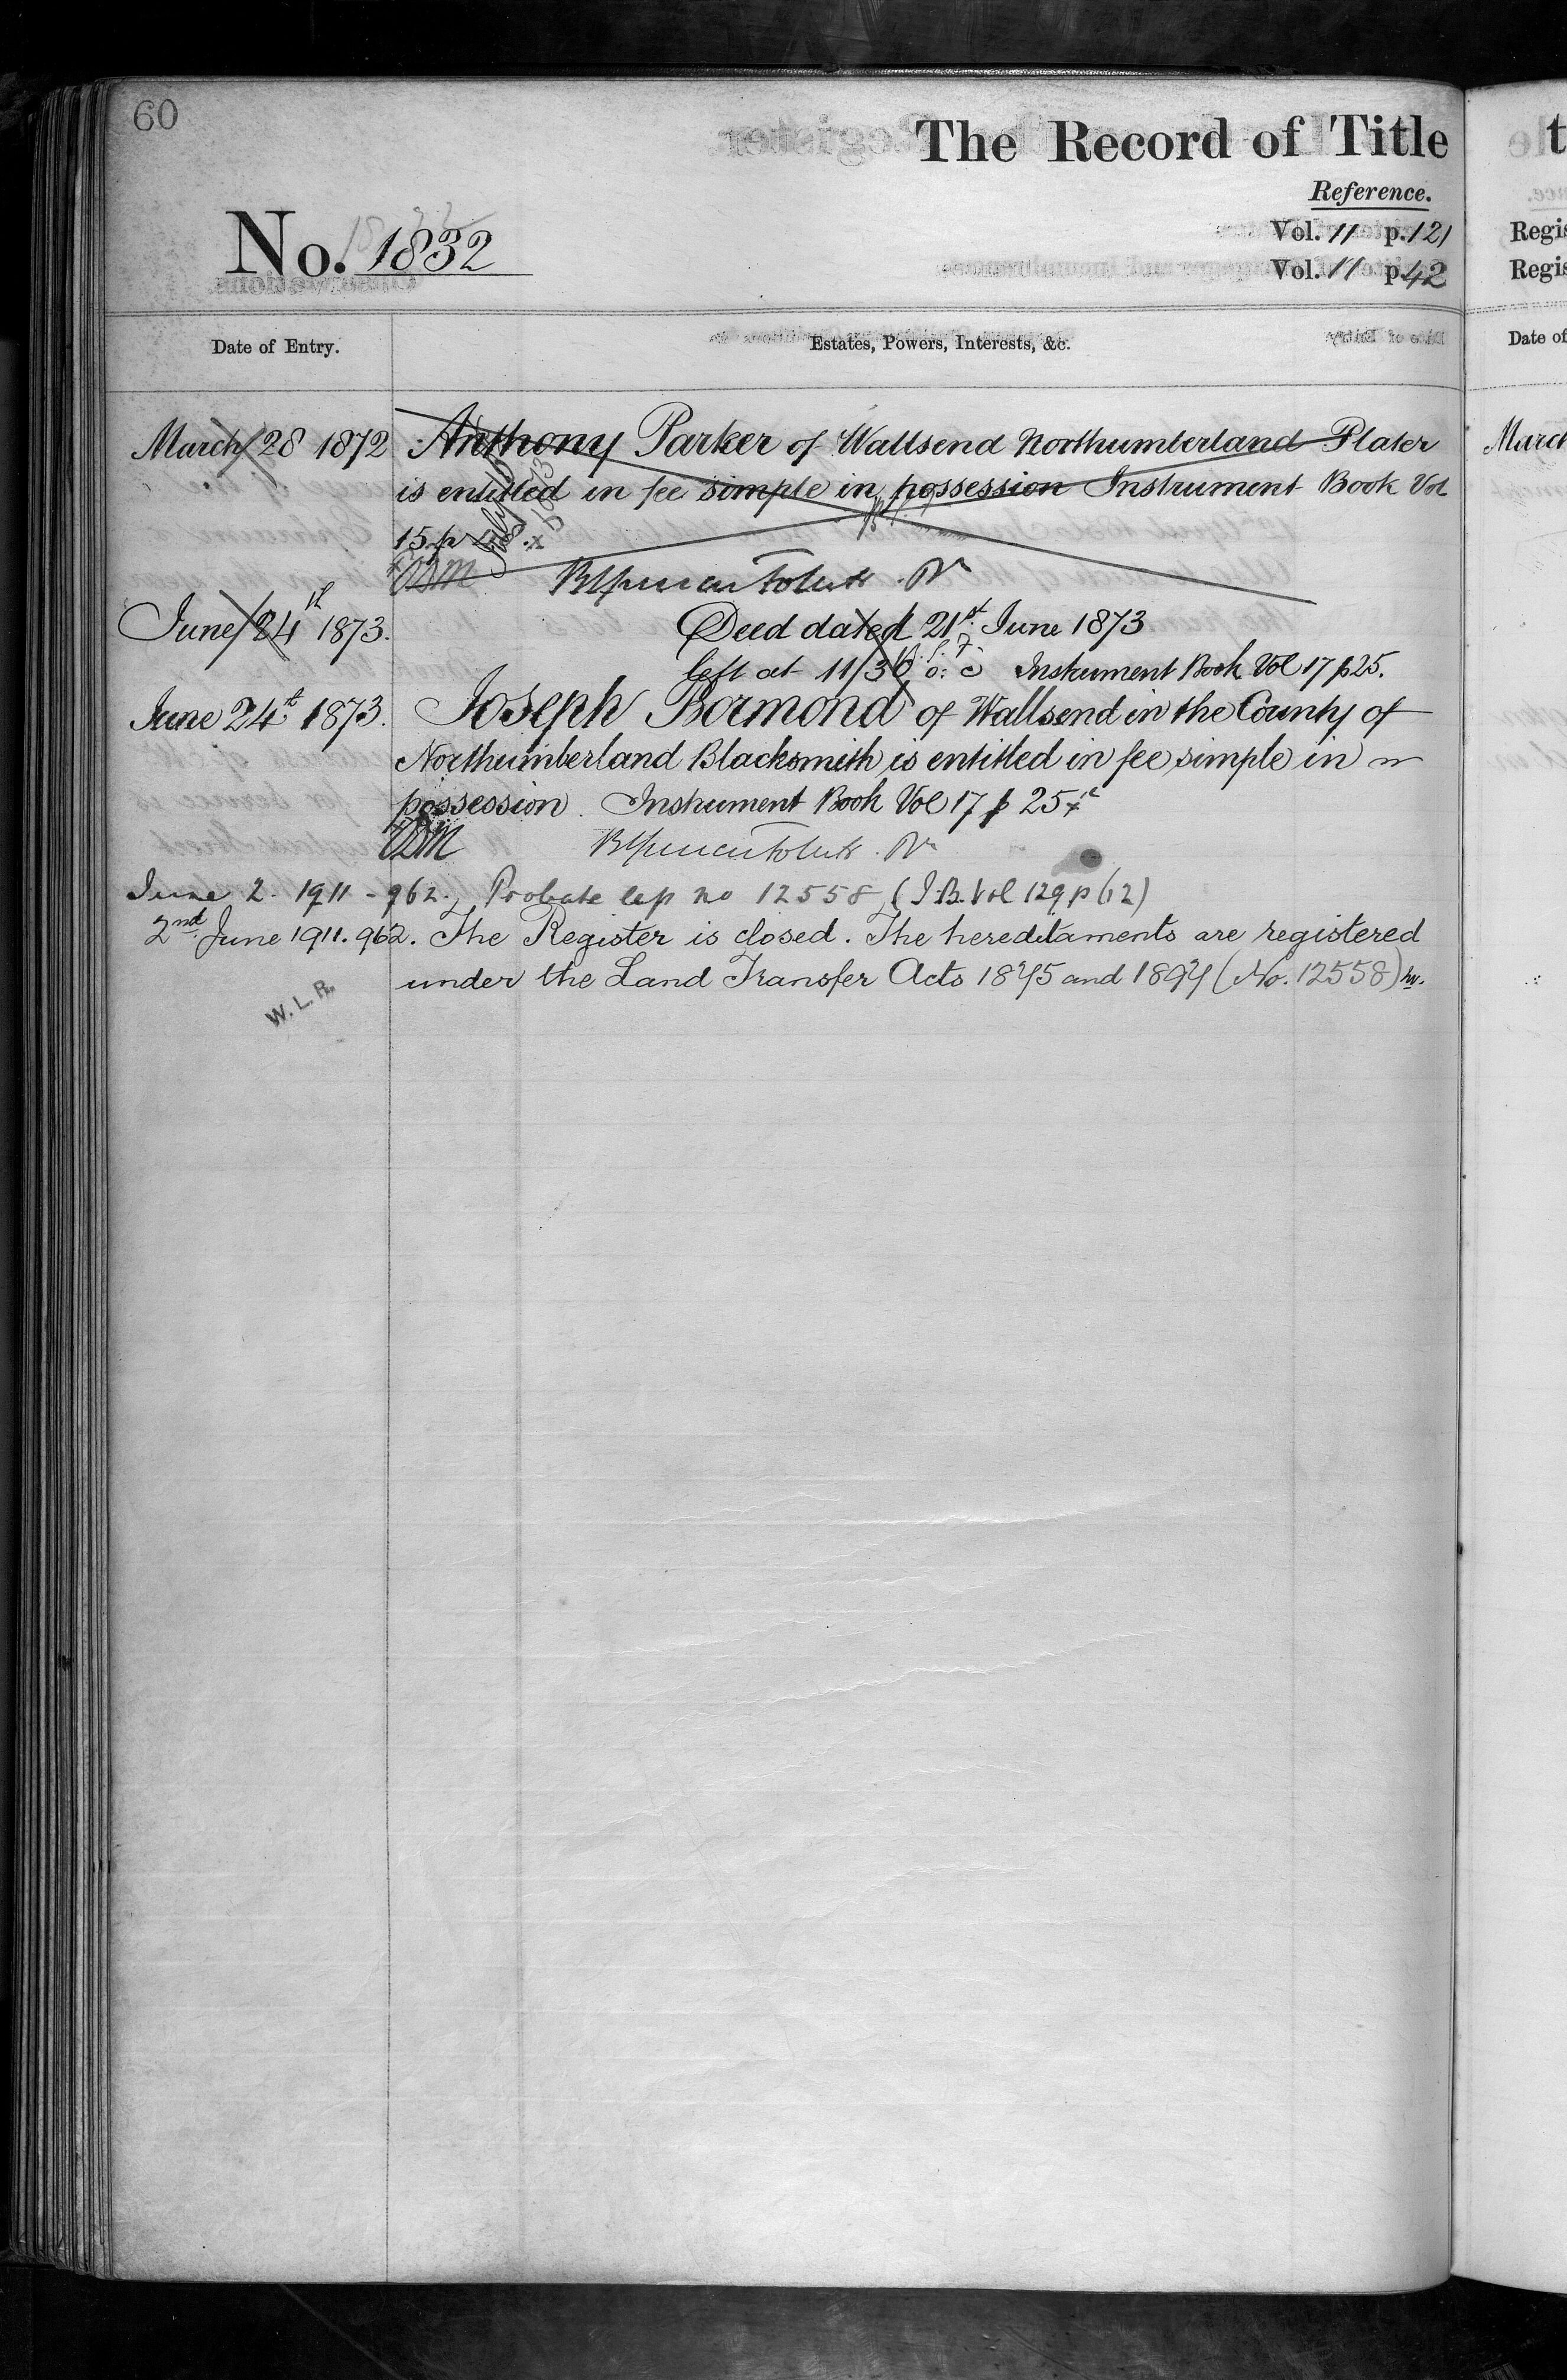 60
The Record of Title
Reference.
No. 1832
Vol. 11 p. 121
Vol. 11 p. 42
Date of Entry.
Estates, Powers, Interests, &c.
March 28 1872 Anthony Parker of Wallsend Northumberland Plater
is entitled in fee simple in possession Instrument Book Vol
15 p
June 24th 1873. Deed dated 21st June 1873
left at 11/30 o: c Instrument Book Vol 17 p 25.
June 24th 1873. Joseph Bormond of Wallsend in the County of
Northumberland Blacksmith is entitled in fee simple in
possession. Instrument Book Vol 17 p 25
June 2. 1911 - 962. Probate no 12558 (I.B. Vol 129 p 62)
2nd June 1911. 962. The Register is closed. The hereditaments are registered
under the Land Transfer Acts 1875 and 1897 (No. 12558)
W. L. R.
t
Regis
Regis
Date of
March